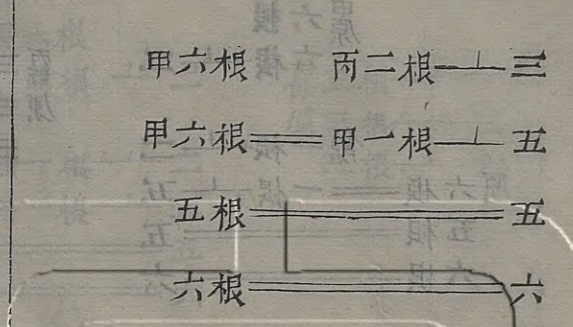 甲六根 丙二根⊥三
甲六根=甲一根⊥五
五根=五
六根=六